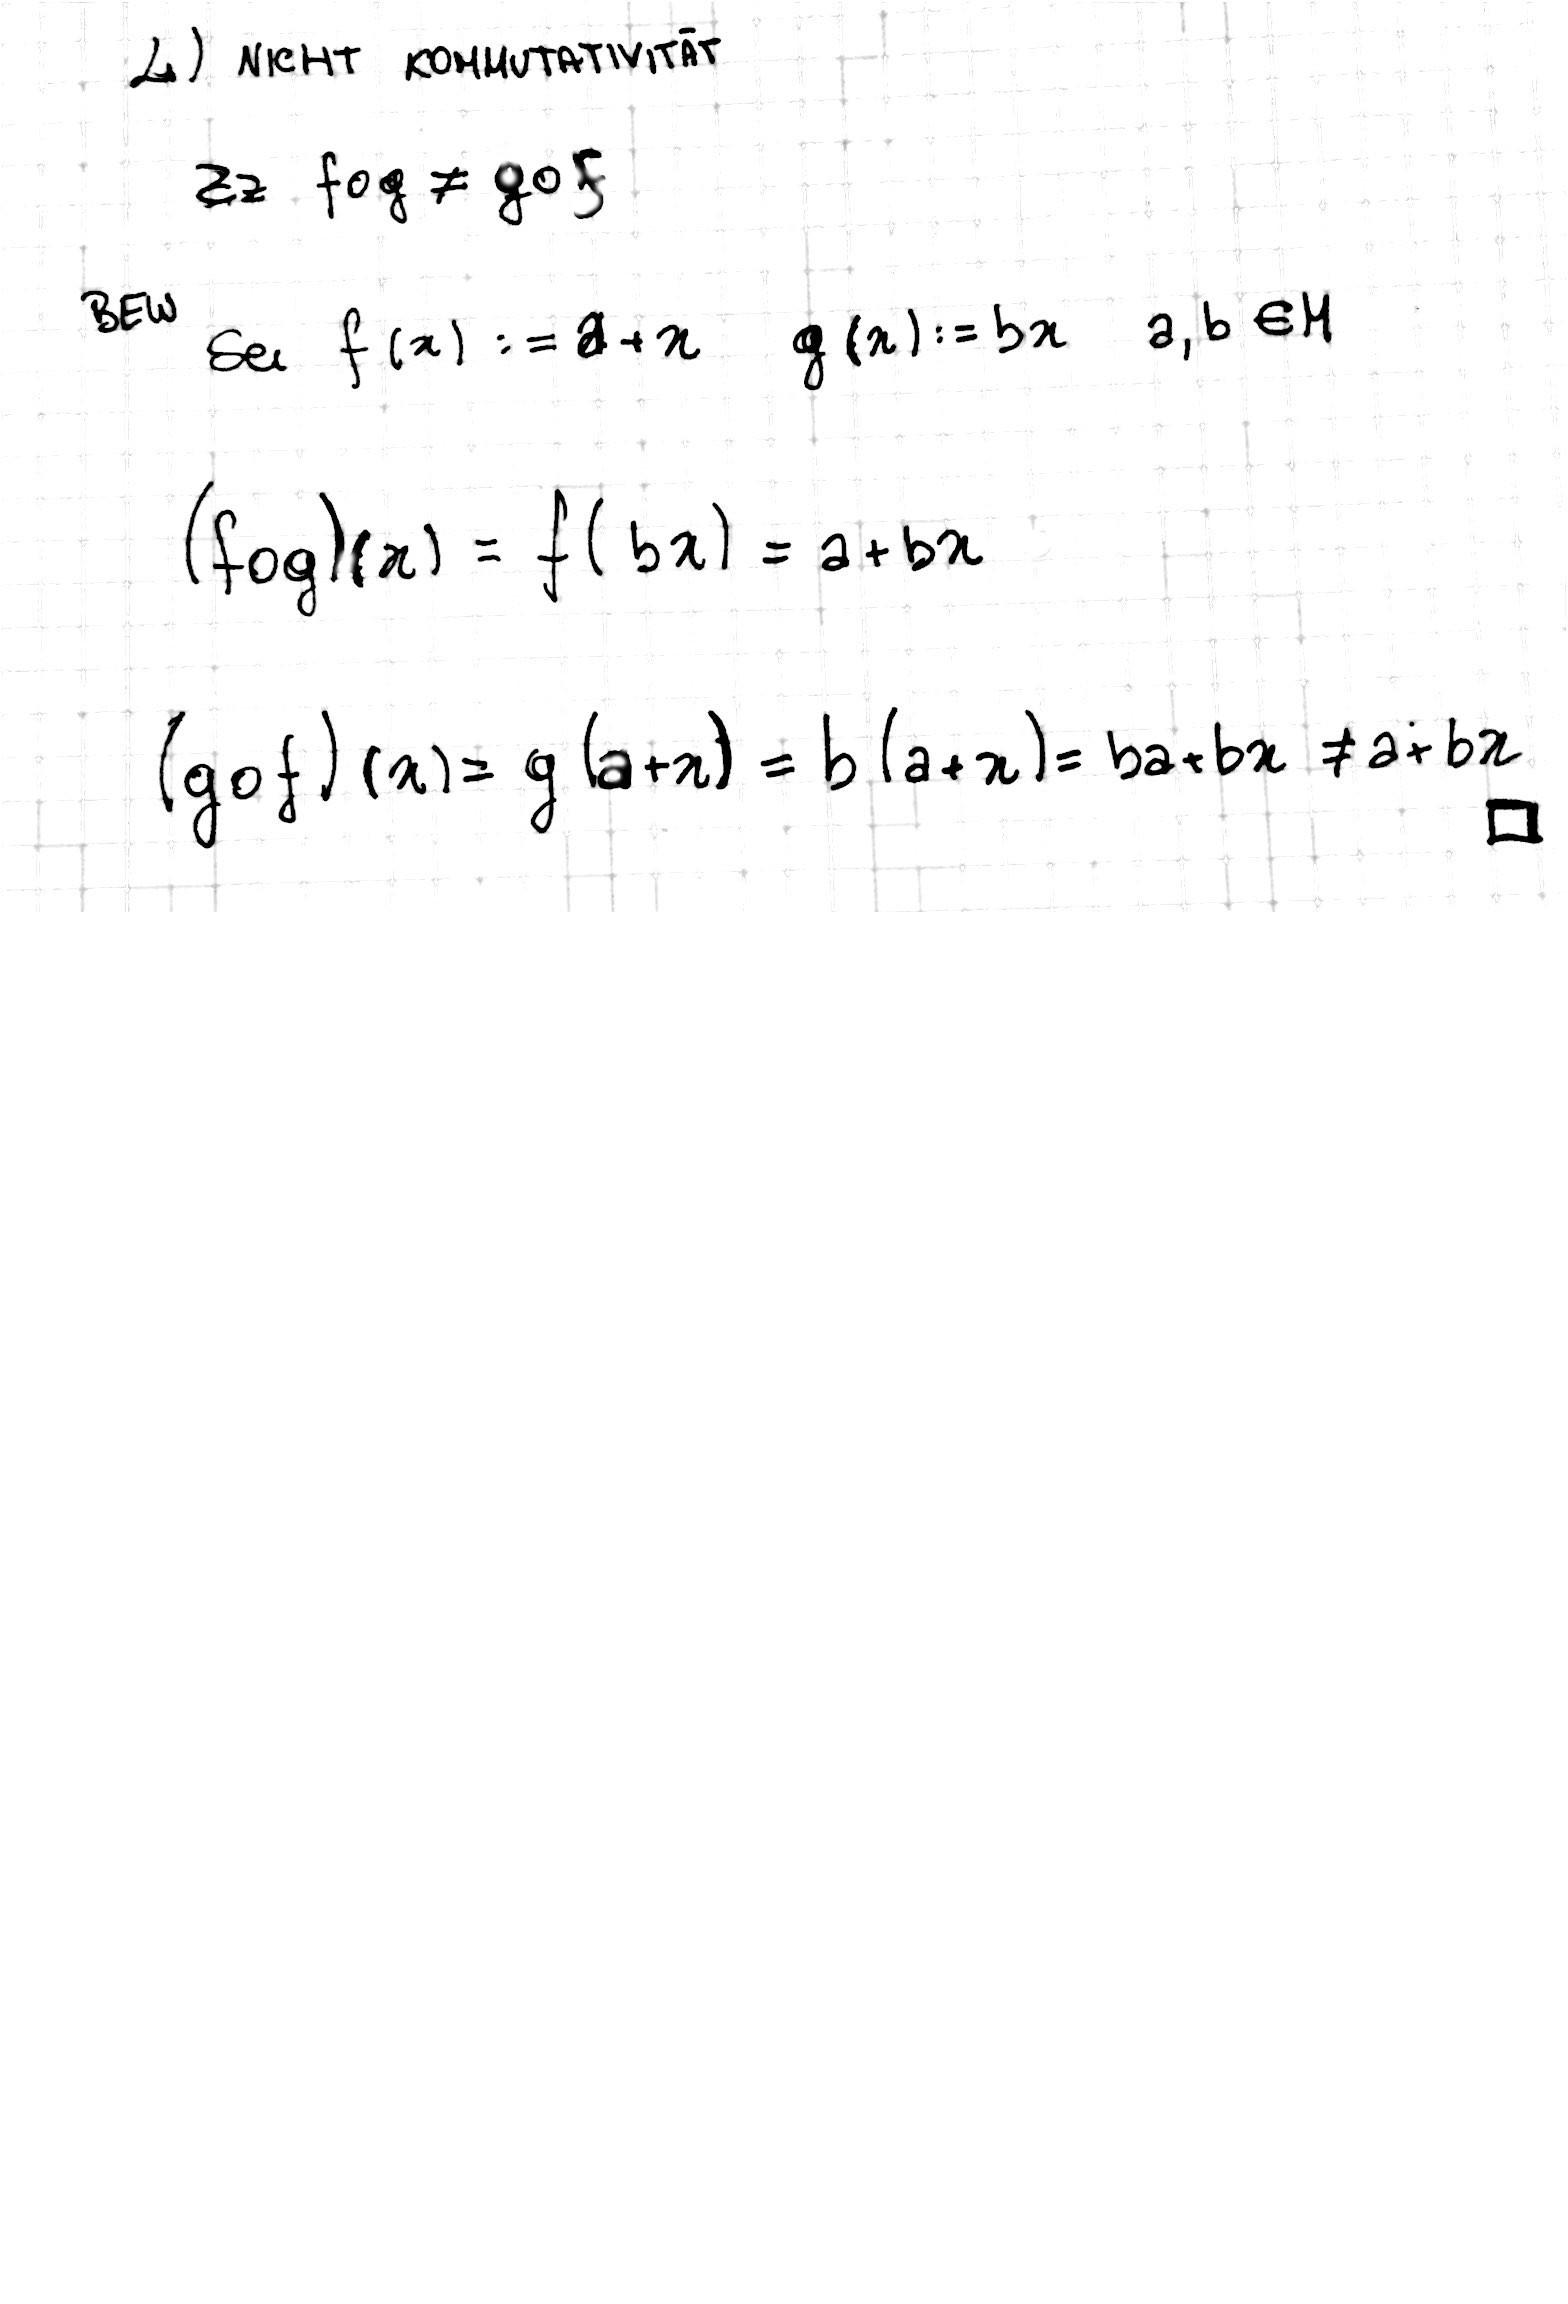 4) NICHT KOMMUTATIVITÄT
Zz f∘g ≠ g∘f
BEW Sei f(x) := a+x g(x) := bx a,b ∈ M
(f∘g)(x) = f(bx) = a+bx
(g∘f)(x) = g(a+x) = b(a+x) = ba+bx ≠ a+bx
□